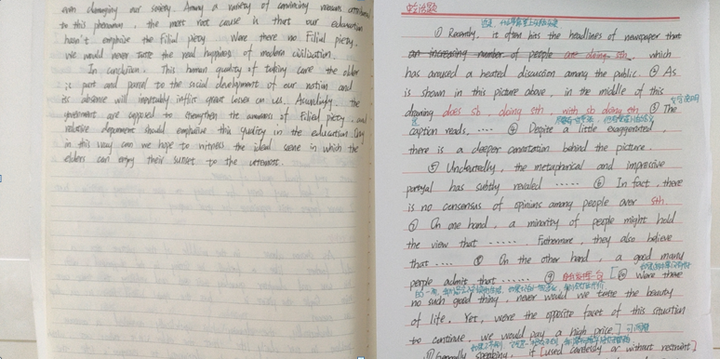 even changing our society. Among a variety of convincing reasons contributing
to this phenomenon, the most root cause is that our education
hasn't emphsize the Filial piety. Were there no Filial piety,
we would never taste the real happiness of modern civilization.
In conclusion. This human quality of taking care the elder
is part and parcel to the social development of our nation and
its absence will inevitably inflict great losses on us. Accordingly, the
government are supposed to strengthen the awareness of Filial piety, and
relative department should emphsize this quality in the education. Only
in this way can we hope to witness the ideal scene in which the
elders can enjoy their sunset to the uttermost.
① Recently, it often hits the headlines of newspaper that
an increasing number of people are doing sth, which
has aroused a heated discussion among the public. ② As
is shown in this picture above, in the middle of this
drawing does sb, doing sth, with sb doing sth ③ The
caption reads, .... ④ Despite a little exaggerated,
there is a deeper connotation behind the picture.
⑤ Undoubtedly, the metaphorical and impressive
portrayal has subtly revealed ...... ⑥ In fact, there
is no consensus of opinions among people over sth.
⑦ On one hand, a minority of people might hold
the view that ...... Futhermore, they also believe
that .... ⑧ On the other hand, a good many
people admit that ...... ⑨ [⑩ Were there
no such good thing, never would we taste the beauty
of life. Yet, were the opposite facet of this situation
to continue, we would pay a high price]
Generally speaking, if [used carelessly or without restraint]